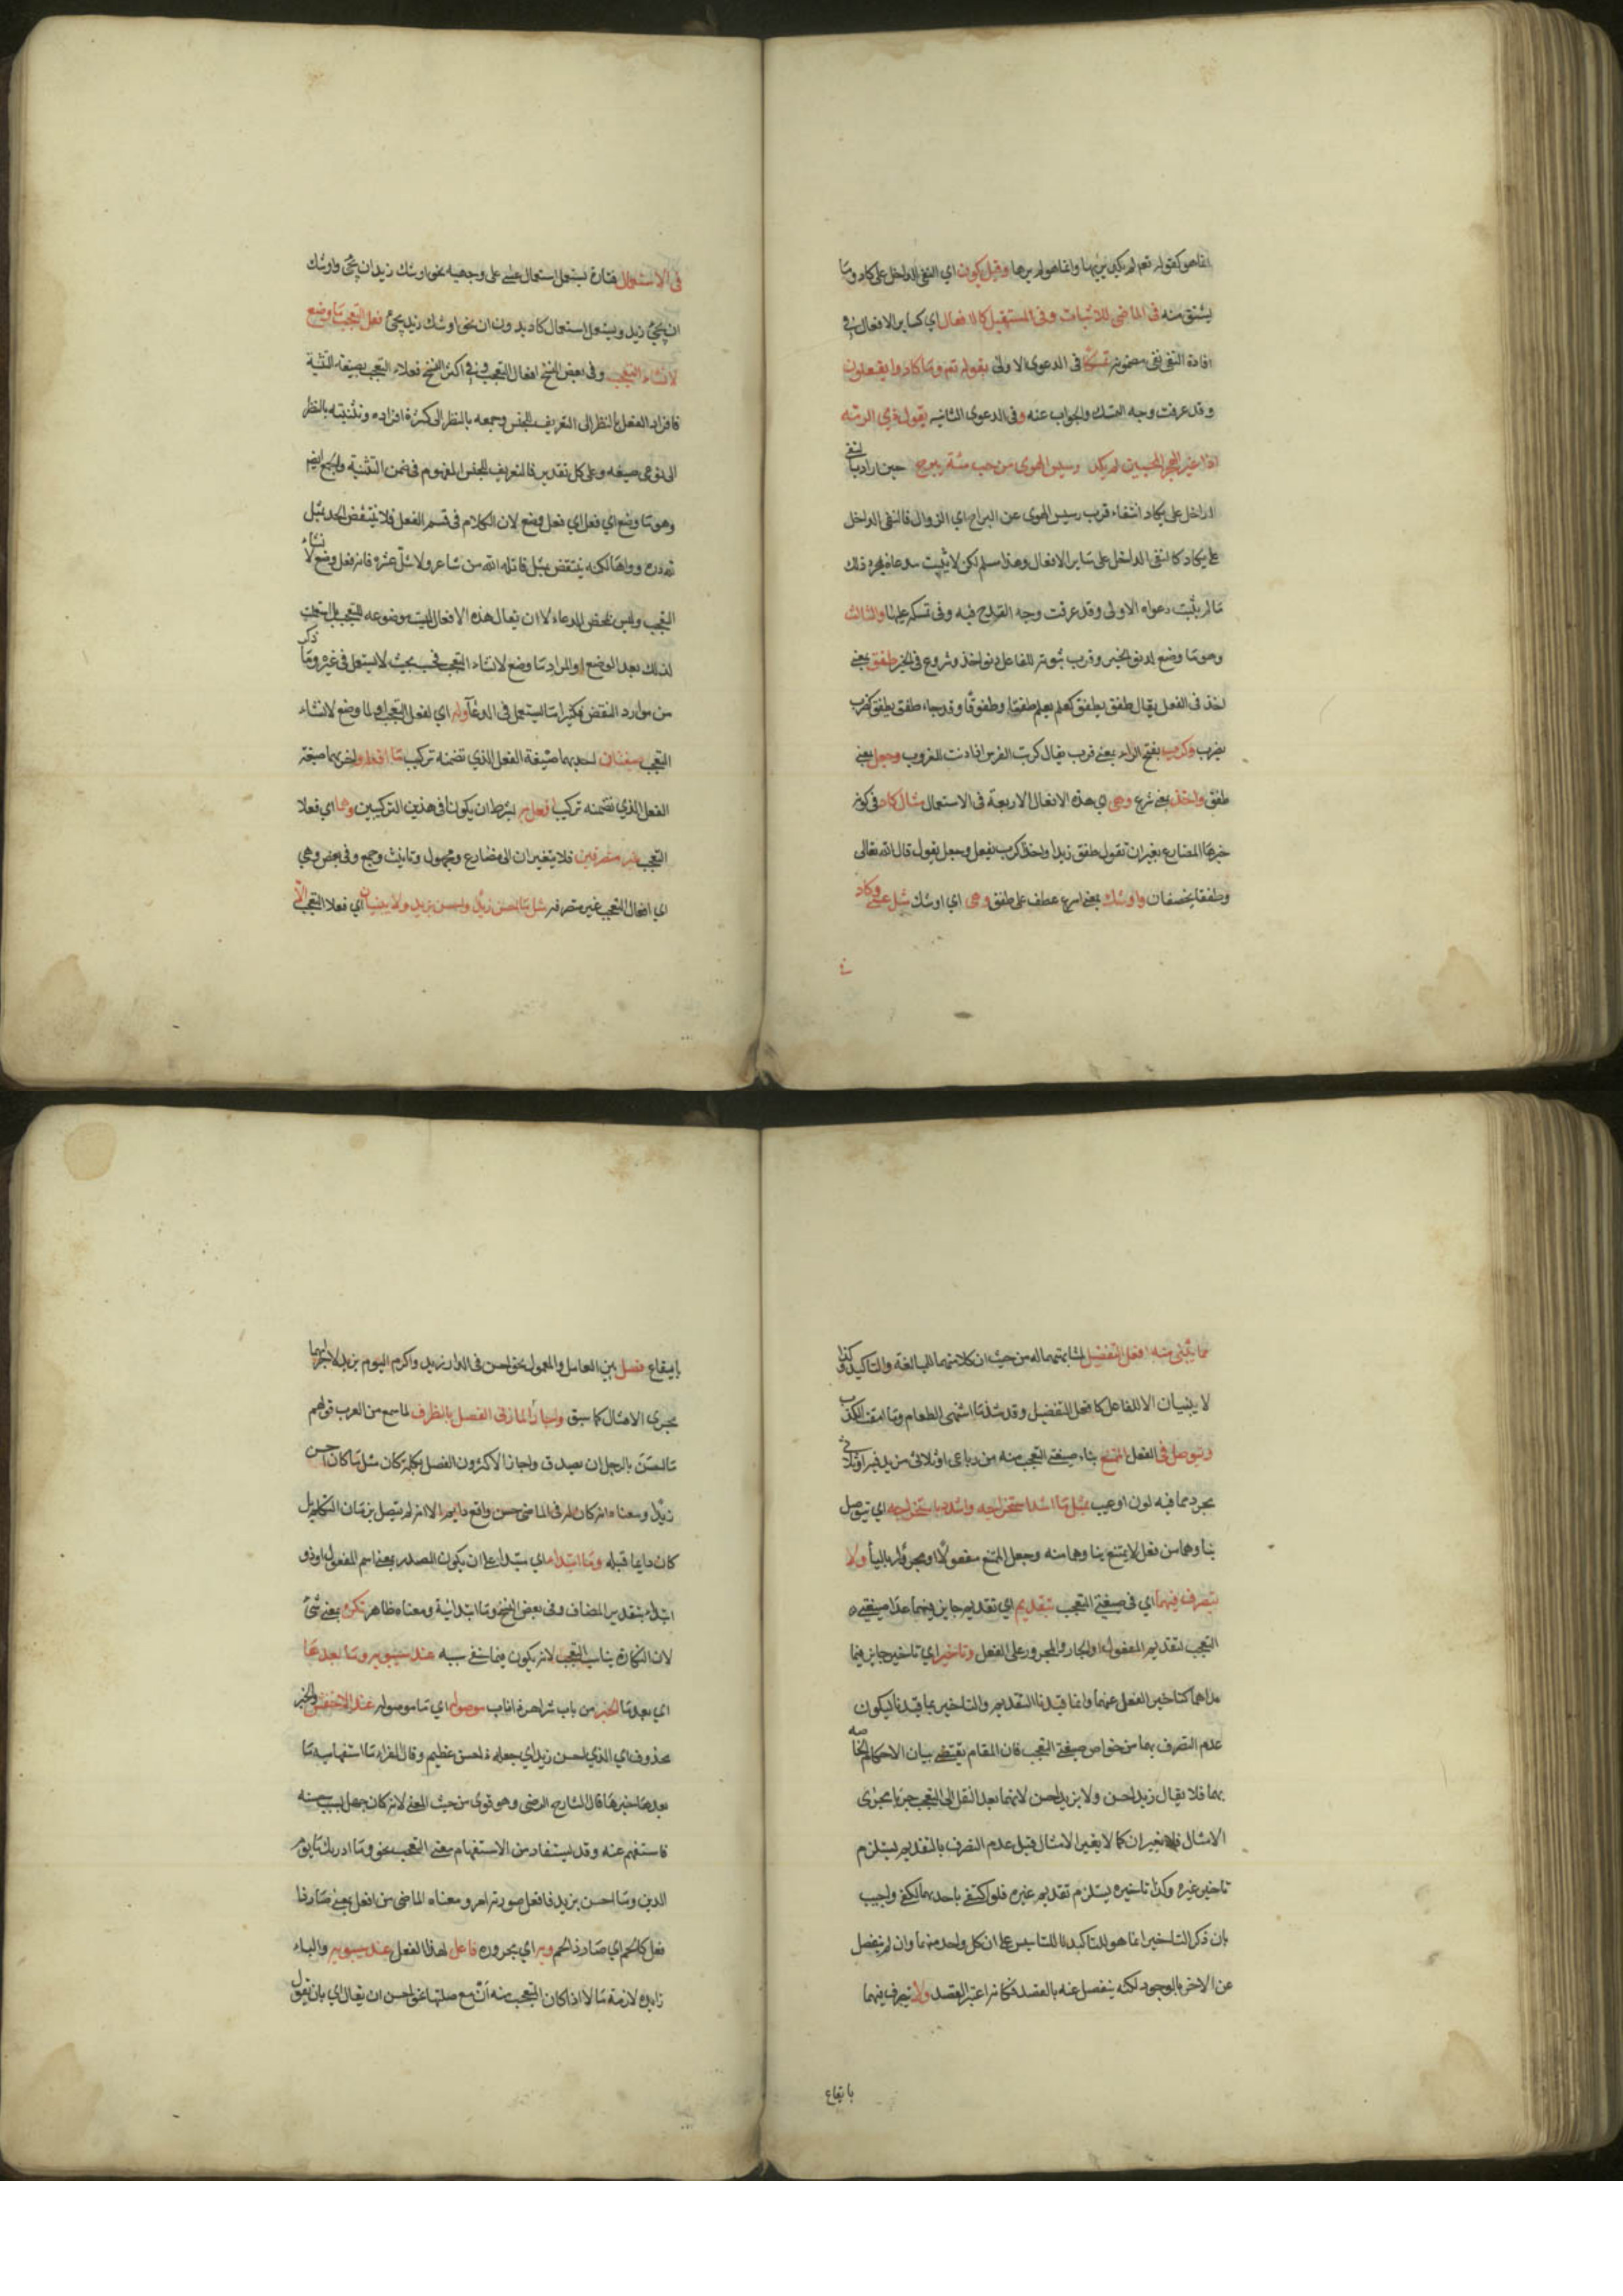 انما هو كقوله تعم لم يكد يريها وانما هو لم يرها وقيل يكون اي النفي الداخل على كاد وما
يشتق منه في الماضي للاثبات وفي المستقبل كالافعال اي كساير الافعال في
افادة النفي نفي مضمونه تمسكا في الدعوى الاولى بقوله تعم وما كادوا يفعلون
وقد عرفت وجه التمسك والجواب عنه وفي الدعوى الثانيه بقول ذي الرمة
اذا غير الهجر المحبين لم يكد رسيس الهوى من حب مية يبرح حين اراد بالنفي
الداخل على يكاد انتفاء قرب رسيس الهوى عن البراح اي الزوال فالنفي الداخل
على يكاد كالنفي الداخل على ساير الافعال وهذا مسلم لكن لا يثبت مدعاه بمجرد ذلك
ما لم يثبت دعواه الاولى وقد عرفت وجه القدح فيه وفي تمسكه عليها والثالث
وهو ما وضع لدنو الخبر وقرب ثبوته للفاعل دنو اخذ وشروع في الخبر طفق بمعنى
اخذ في الفعل يقال طفق يطفق كعلم يعلم طفقا وطفوقا وقد جاء طفق يطفق كضرب
يضرب وكرب بفتح الراء بمعنى قرب يقال كربت الشمس اذا دنت للغروب وجعل بمعنى
طفق واخذ بمعنى شرع وهي اي هذه الافعال الاربعة في الاستعمال مثل كاد في كون
خبرها المضارع بغير ان تقول طفق زيد او اخذ او كرب يفعل وجعل يقول قال الله تعالى
وطفقا يخصفان واوشك بمعنى اسرع عطف على طفق وهي اي اوشك مثل عسى وكاد
في
في الاستعمال فتارة يستعمل استعمال عسى على وجهيه نحو اوشك زيد ان يجئ واوشك
ان يجئ زيد ويستعمل استعمال كاد بدون ان نحو اوشك زيد يجئ فعل التعجب ما وضع
لانشاء التعجب وفي بعض النسخ افعال التعجب وفي اكثر النسخ فعلا التعجب بصيغة التثنية
فافراد الفعل بالنظر الى التعريف للجنس وجمعه بالنظر الى كثرة افراده وتثنيته بالنظر
الى نوعي صيغه وعلى كل تقدير فالتعريف للجنس المفهوم في ضمن التثنية والجمع ايضم
وهو ما وضع اي فعل اي فعل وضع لان الكلام في قسم الفعل فلا ينتقض الحد بمثل
لله دره وواها لكنه ينتقض بمثل قاتله الله من شاعر ولا شل عشره فانه فعل وضع لانشاء
التعجب وليس بمحض الدعاء الا ان يقال هذه الافعال ليست موضوعه للتعجب بل استعملت
لذلك بعد الوضع او المراد ما وضع لانشاء التعجب فحسب بحيث لا يستعمل في غيره وما ذكر
من موارد النقض فكثيرا ما يستعمل في الدعاء وله اي لفعل التعجب او لما وضع لانشاء
التعجب صيغتان احديهما صيغة الفعل الذي تضمنه تركيب ما افعله واخريهما صيغة
الفعل الذي تضمنه تركيب افعل به بشرط ان يكونا في هذين التركيبين وهما اي فعلا
التعجب غير متصرفين فلا يتغيران الى مضارع ومجهول وتانيث وجمع وفي بعض وهي
اي افعال التعجب غير متصرفة مثل ما احسن زيدا واحسن بزيد ولا يبنيان اي فعلا التعجب الا
مما يبنى منه افعل التفضيل لمشابهتهما له من حيث ان كلا منهما للمبالغة والتاكيد وكذا
لا يبنيان الا للفاعل كافعل التفضيل وقد شذ ما اشهى الطعام وما امقت الكذب
ويتوصل في الفعل الممتنع بناء صيغتي التعجب منه من رباعي او ثلاثي مزيد فيه او ثلاثي
مجرد مما فيه لون او عيب بمثل ما اشد استخراجه واشدد باستخراجه اي يتوصل
بناوهما من فعل لا يمتنع بناوهما منه وجعل الممتنع مفعولا او مجرورا بالباء ولا
يتصرف فيهما اي في صيغتي التعجب بتقديم اي تقديم جايز فيما عدا صيغتي
التعجب كتقديم المفعول او الجار والمجرور على الفعل وتاخير اي تاخير جايز فيما
عداهما كتاخير الفعل عنهما وانما قيدنا التقديم والتاخير بما قيدنا ليكون
عدم التصرف بهما من خواص صيغتي التعجب فان المقام يقتضي بيان الاحكام الخاصه
بهما فلا يقال زيدا احسن ولا بزيد احسن لانهما بعد النقل الى التعجب جريا مجرى
الامثال فلا يغيران كما لا يغير الامثال قيل عدم التصرف بالتقديم يستلزم
تاخير غيره وكذا تاخيره يستلزم تقديم غيره فلو اكتفى باحدهما لكفى واجيب
بان ذكر التاخير انما هو للتاكيد لا للتاسيس على ان كل واحد منهما وان لم ينفصل
عن الاخر بالوجود لكنه ينفصل عنه بالقصد فكانه اعتبر القصد ولا يتصرف فيهما
بايقاع
بايقاع فصل بين العامل والمعمول نحو احسن في الدار زيد واكرم اليوم بزيد لاجرائهما
مجرى الامثال كما سبق واجاز المازني الفصل بالظرف لما سمع من العرب قولهم
ما احسن بالرجل ان يصدق واجاز الاكثرون الفصل بكلمة كان مثل ما كان احسن
زيدا ومعناه انه كان له في الماضي حسن واقع دايم الا انه لم يتصل بزمان التكلم بل
كان دايما قبله وما ابتداء اي مبتداء على ان يكون المصدر بمعنى اسم المفعول او ذو
ابتداء بتقدير المضاف وفي بعض النسخ وما ابتدائية ومعناه ظاهر نكرة بمعنى شئ
لان النكارة يناسب التعجب لانه يكون فيما خفي سببه عند سيبويه وما بعدها
اي بعد ما الخبر من باب شر اهر ذا ناب موصولة اي ما موصولة عند الاخفش والخبر
محذوف اي الذي احسن زيدا اي جعله ذا حسن عظيم وقال الفراء ما استفهامية ما
بعدها خبرها قال الشارح الرضي وهو قوي من حيث المعنى لانه كان جهل سبب حسنه
فاستفهم عنه وقد يستفاد من الاستفهام معنى التعجب نحو وما ادريك ما يوم
الدين وما احسن بزيد فافعل صورته امر ومعناه الماضي من افعل بمعنى صار ذا
فعل كالحم اي صار ذا لحم وبه اي مجروره فاعل لهذا الفعل عند سيبويه والباء
زايدة لازمة ما الا اذا كان المتعجب منه ان مع صلتها نحو احسن ان يقال اي بان يقول